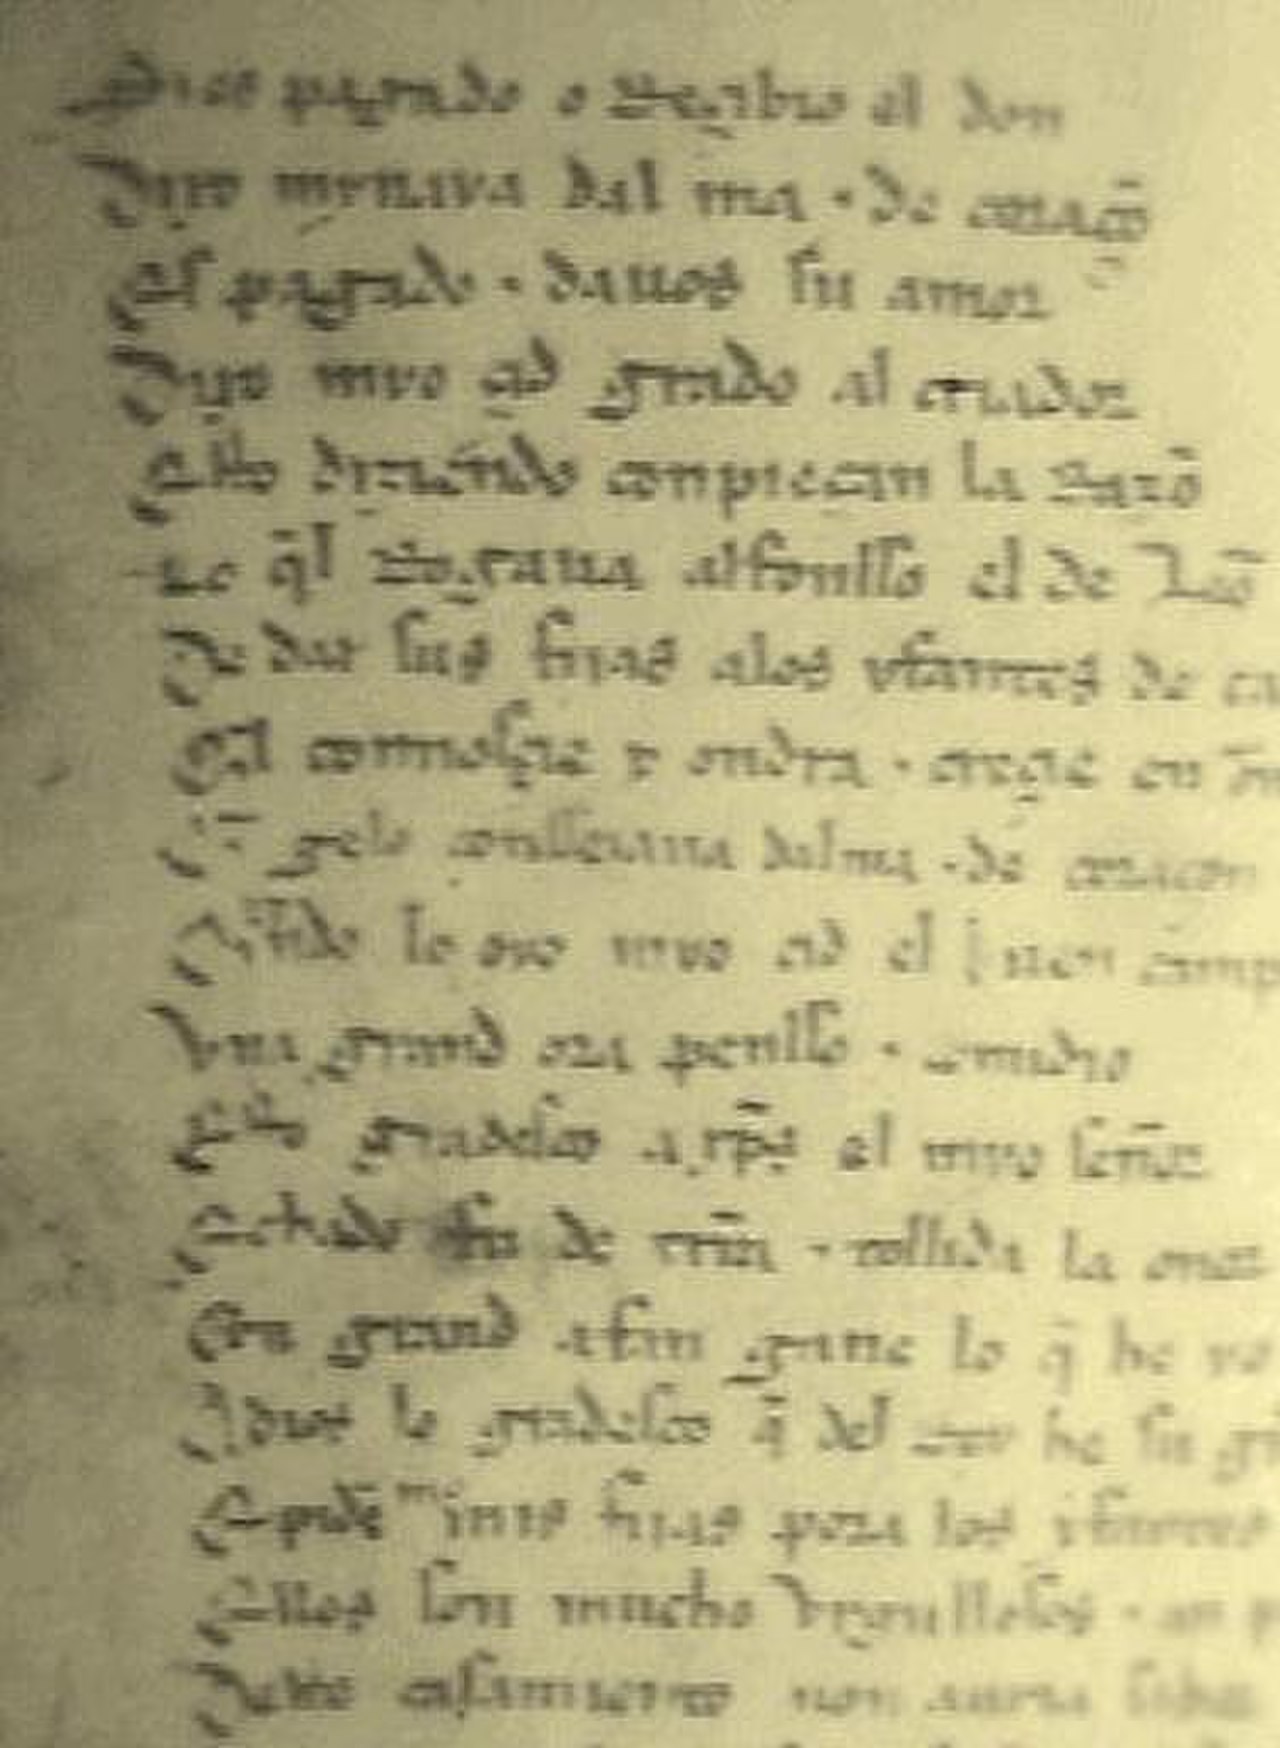 Si es pagado o Reçibio el don
Dixo mynaya dal ma · de coraçō
Es pagado · dauos su amor
Dyxo myo çid grado al criador
Esto diziēdo conpieçan la Razō
Lo q̄l Rogaua alfonsso el de Leō
De dar sus fijas alos yfantes de ca
Q̄l connosçie y ondra · creçie en on
Q̄ gelo consseiaua dalma · de coraçon
Quādo lo oyo myo cid el buen camp
Vna grand ora pensso · comidio
Esto gradesco a xp̄s el myo señor
Echado fu de tr̄ra · tollida la onor
Con grand afan gane lo q̄ he yo
A dios lo gradesco q̄ del Rey he su gr
E pidē me mis fijas pora los yfantes
Ellos son mucho vrgullosos · an p
Deste casamiento non auria sabor